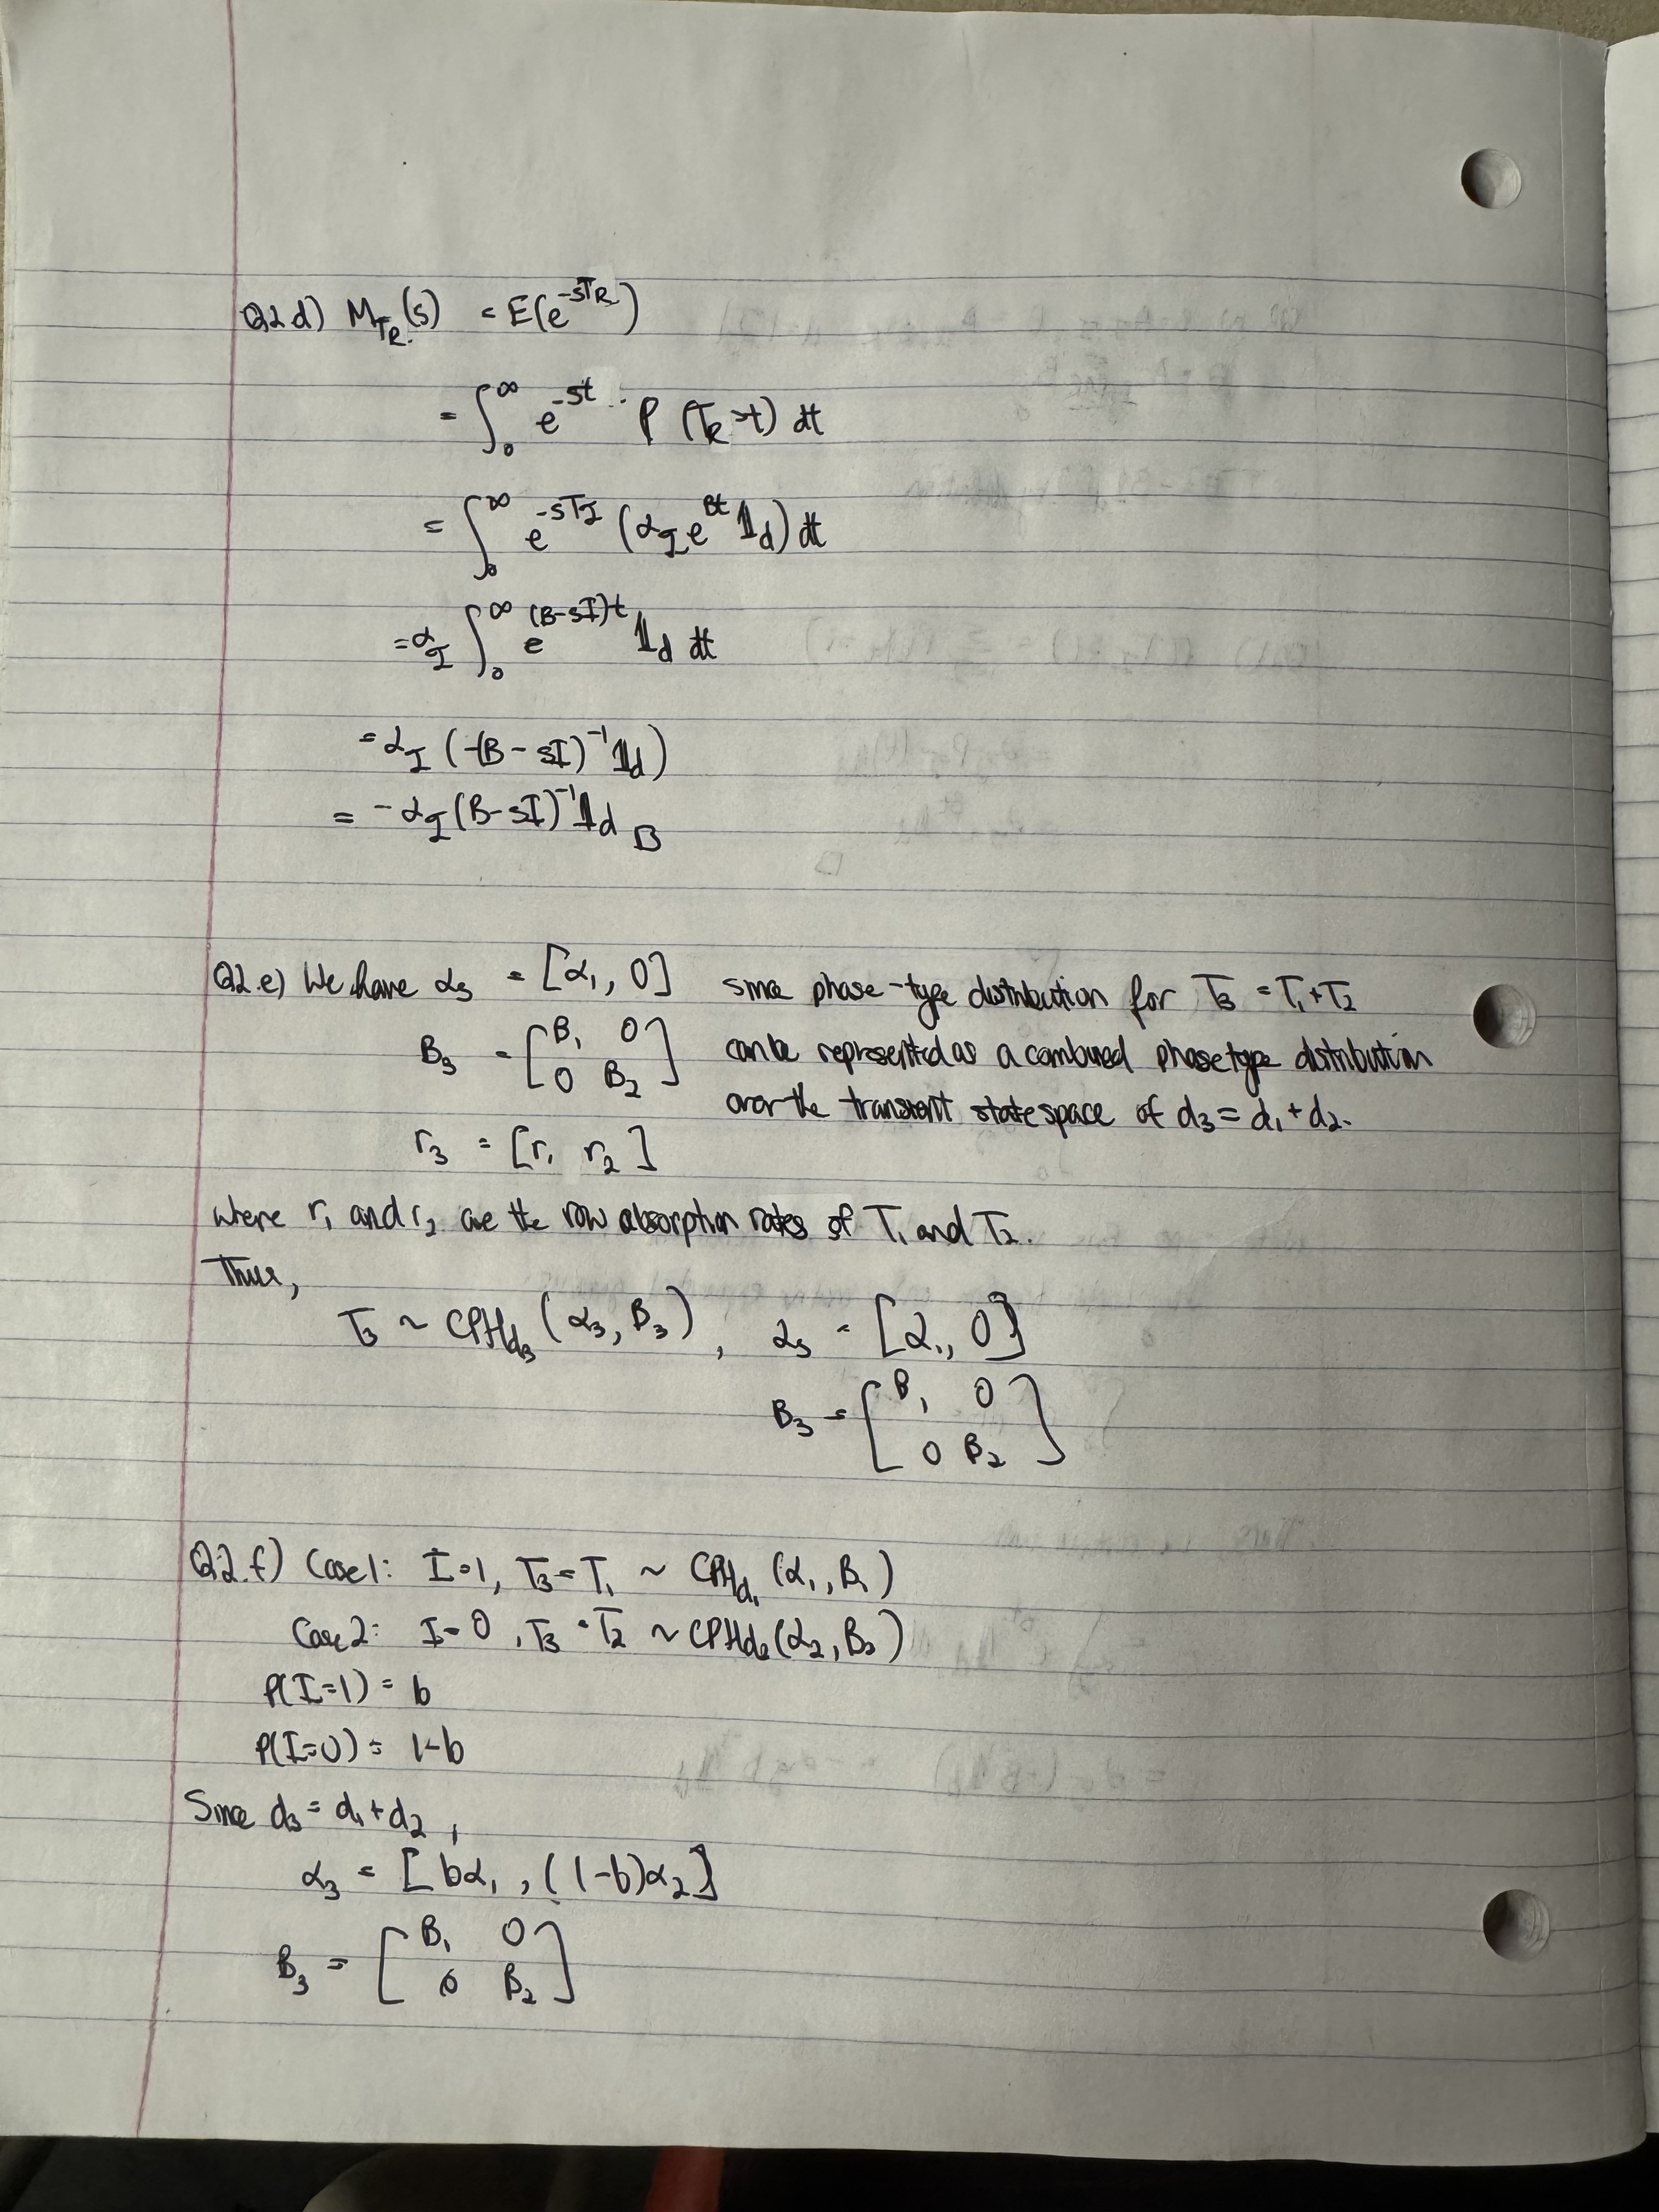 Q2.d) M_{T_R}(s) = E(e^{-sT_R})
= ∫_0^∞ e^{-st} P(T_R > t) dt
= ∫_0^∞ e^{-sT_I} (α_I e^{Bt} 𝟙_d) dt
= α_I ∫_0^∞ e^{(B-sI)t} 𝟙_d dt
= α_I (-(B-sI)^{-1} 𝟙_d)
= -α_I (B-sI)^{-1} 𝟙_d
Q2.e) We have α_3 = [α_1, 0] since phase-type distribution for T_3 = T_1 + T_2
B_3 = [B_1 0; 0 B_2] can be represented as a combined phase type distribution
over the transient state space of d_3 = d_1 + d_2.
r_3 = [r_1 r_2]
where r_1 and r_2 are the row absorption rates of T_1 and T_2.
Thus,
T_3 ~ CPH_{d_3}(α_3, B_3), α_3 = [α_1, 0]
B_3 = [B_1 0; 0 B_2]
Q2.f) Case 1: I=1, T_3 = T_1 ~ CPH_{d_1}(α_1, B_1)
Case 2: I=0, T_3 = T_2 ~ CPH_{d_2}(α_2, B_2)
P(I=1) = b
P(I=0) = 1-b
Since d_3 = d_1 + d_2,
α_3 = [bα_1, (1-b)α_2]
B_3 = [B_1 0; 0 B_2]